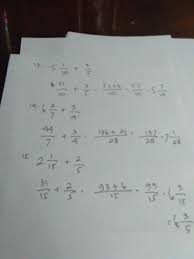 13. 5 1/10 + 3/5
51/10 + 3/5 = 51+3/10 = 57/10 = 5 7/10
14. 6 2/7 + 3/4
44/7 + 3/4 = 96+21/28 = 137/28 = 7 1/28
15 2 1/15 + 2/5
31/15 + 2/5 = 93+6/15 = 93/15 = 6 3/15
= 6 3/5